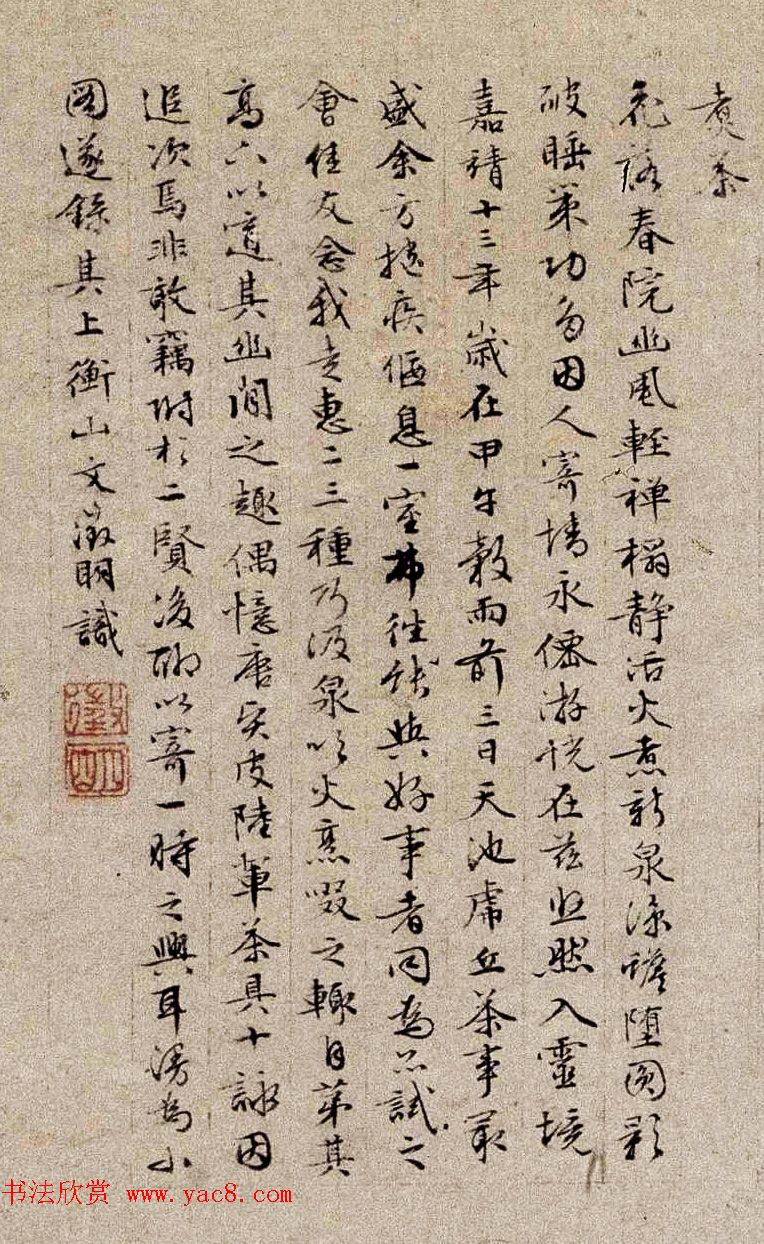 煮茶
花落春院幽風輕禅榻静活火煮新泉涼蟾堕圓影
破睡策功多因人寄情永僊游恍在兹悠然入靈境
嘉靖十三年歲在甲午穀雨前三日天池虎丘茶事最
盛余方抱疾偃息一室弗往能與好事者同為品試之
會佳友念我走惠二三種乃汲泉吹火烹啜之輒自苐其
高下以適其幽閒之趣偶憶唐賢皮陸輩茶具十詠因
追次焉非敢竊附於二賢後聊以寄一時之興耳漫為小
圖遂錄其上衡山文徵明識
徵明
书法欣赏 www.yac8.com